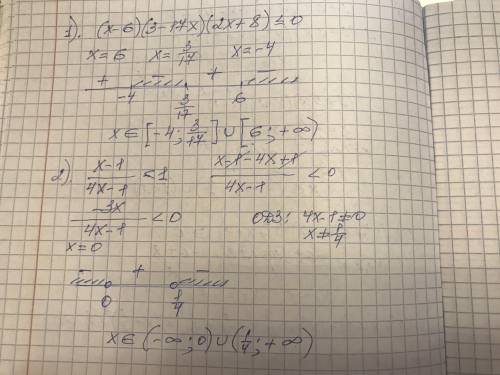 1). (x-6)(3-17x)(2x+8)≤0
x=6 x=3/17 x=-4
+ - + -
-4 3/17 6
x∈[-4; 3/17]∪[6; +∞)
2). (x-1)/(4x-1)<1 (x-1-4x+1)/(4x-1)<0
-3x/(4x-1)<0 ОДЗ: 4x-1≠0
x=0 x≠1/4
- + -
0 1/4
x∈(-∞; 0)∪(1/4; +∞)